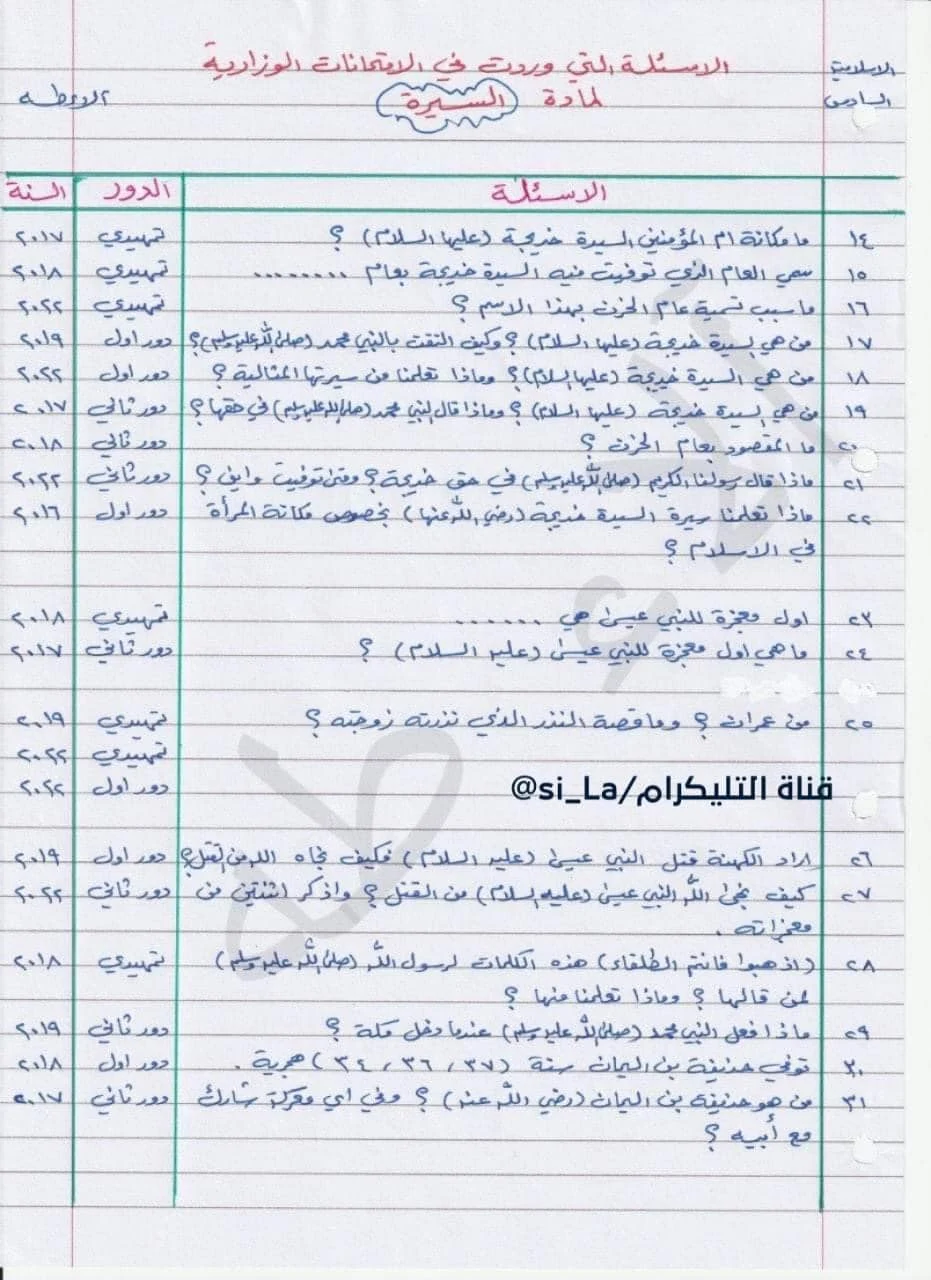 الاسلامية
السادس
الاسئلة التي وردت في الامتحانات الوزارية
لمادة السيرة
آلاء طه
الاسئلة الدور السنة
١٤ ما مكانة ام المؤمنين السيدة خديجة (عليها السلام) ؟ تمهيدي ٢٠١٧
١٥ سمي العام الذي توفيت فيه السيدة خديجة بعام ........ تمهيدي ٢٠١٨
١٦ ما سبب تسمية عام الحزن بهذا الاسم ؟ تمهيدي ٢٠٢٢
١٧ من هي السيدة خديجة (عليها السلام) ؟ وكيف التقت بالنبي محمد (صلى الله عليه وسلم) ؟ دور اول ٢٠١٩
١٨ من هي السيدة خديجة (عليها السلام) ؟ وماذا تعلمنا من سيرتها المثالية ؟ دور اول ٢٠٢٢
١٩ من هي السيدة خديجة (عليها السلام) ؟ وماذا قال النبي محمد (صلى الله عليه وسلم) في حقها ؟ دور ثاني ٢٠١٧
٢٠ ما المقصود بعام الحزن ؟ دور ثاني ٢٠١٨
٢١ ماذا قال رسولنا الكريم (صلى الله عليه وسلم) في حق خديجة ؟ ومتى توفيت واين ؟ دور ثاني ٢٠٢٢
٢٢ ماذا تعلمنا سيرة السيدة خديجة (رضي الله عنها) بخصوص مكانة المرأة دور اول ٢٠١٦
في الاسلام ؟
٢٣ اول معجزة للنبي عيسى هي ...... تمهيدي ٢٠١٨
٢٤ ما هي اول معجزة للنبي عيسى (عليه السلام) ؟ دور ثاني ٢٠١٧
٢٥ من عمران ؟ وما قصة النذر الذي نذرته زوجته ؟ تمهيدي ٢٠١٩
تمهيدي ٢٠٢٢
دور اول ٢٠٢٢
قناة التليكرام/si_La@
٢٦ اراد الكهنة قتل النبي عيسى (عليه السلام) فكيف نجاه الله من القتل ؟ دور اول ٢٠١٩
٢٧ كيف نجى الله النبي عيسى (عليه السلام) من القتل ؟ واذكر اثنتين من دور ثاني ٢٠٢٢
معجزاته .
٢٨ (اذهبوا فانتم الطلقاء) هذه الكلمات لرسول الله (صلى الله عليه وسلم) تمهيدي ٢٠١٨
لمن قالها ؟ وماذا تعلمنا منها ؟
٢٩ ماذا فعل النبي محمد (صلى الله عليه وسلم) عندما دخل مكة ؟ دور ثاني ٢٠١٩
٣٠ توفي حذيفة بن اليمان سنة (٣٧ ، ٣٦ ، ٣٤) هجرية . دور اول ٢٠١٨
٣١ من هو حذيفة بن اليمان (رضي الله عنه) ؟ وفي اي معركة شارك دور ثاني ٢٠١٧
مع أبيه ؟